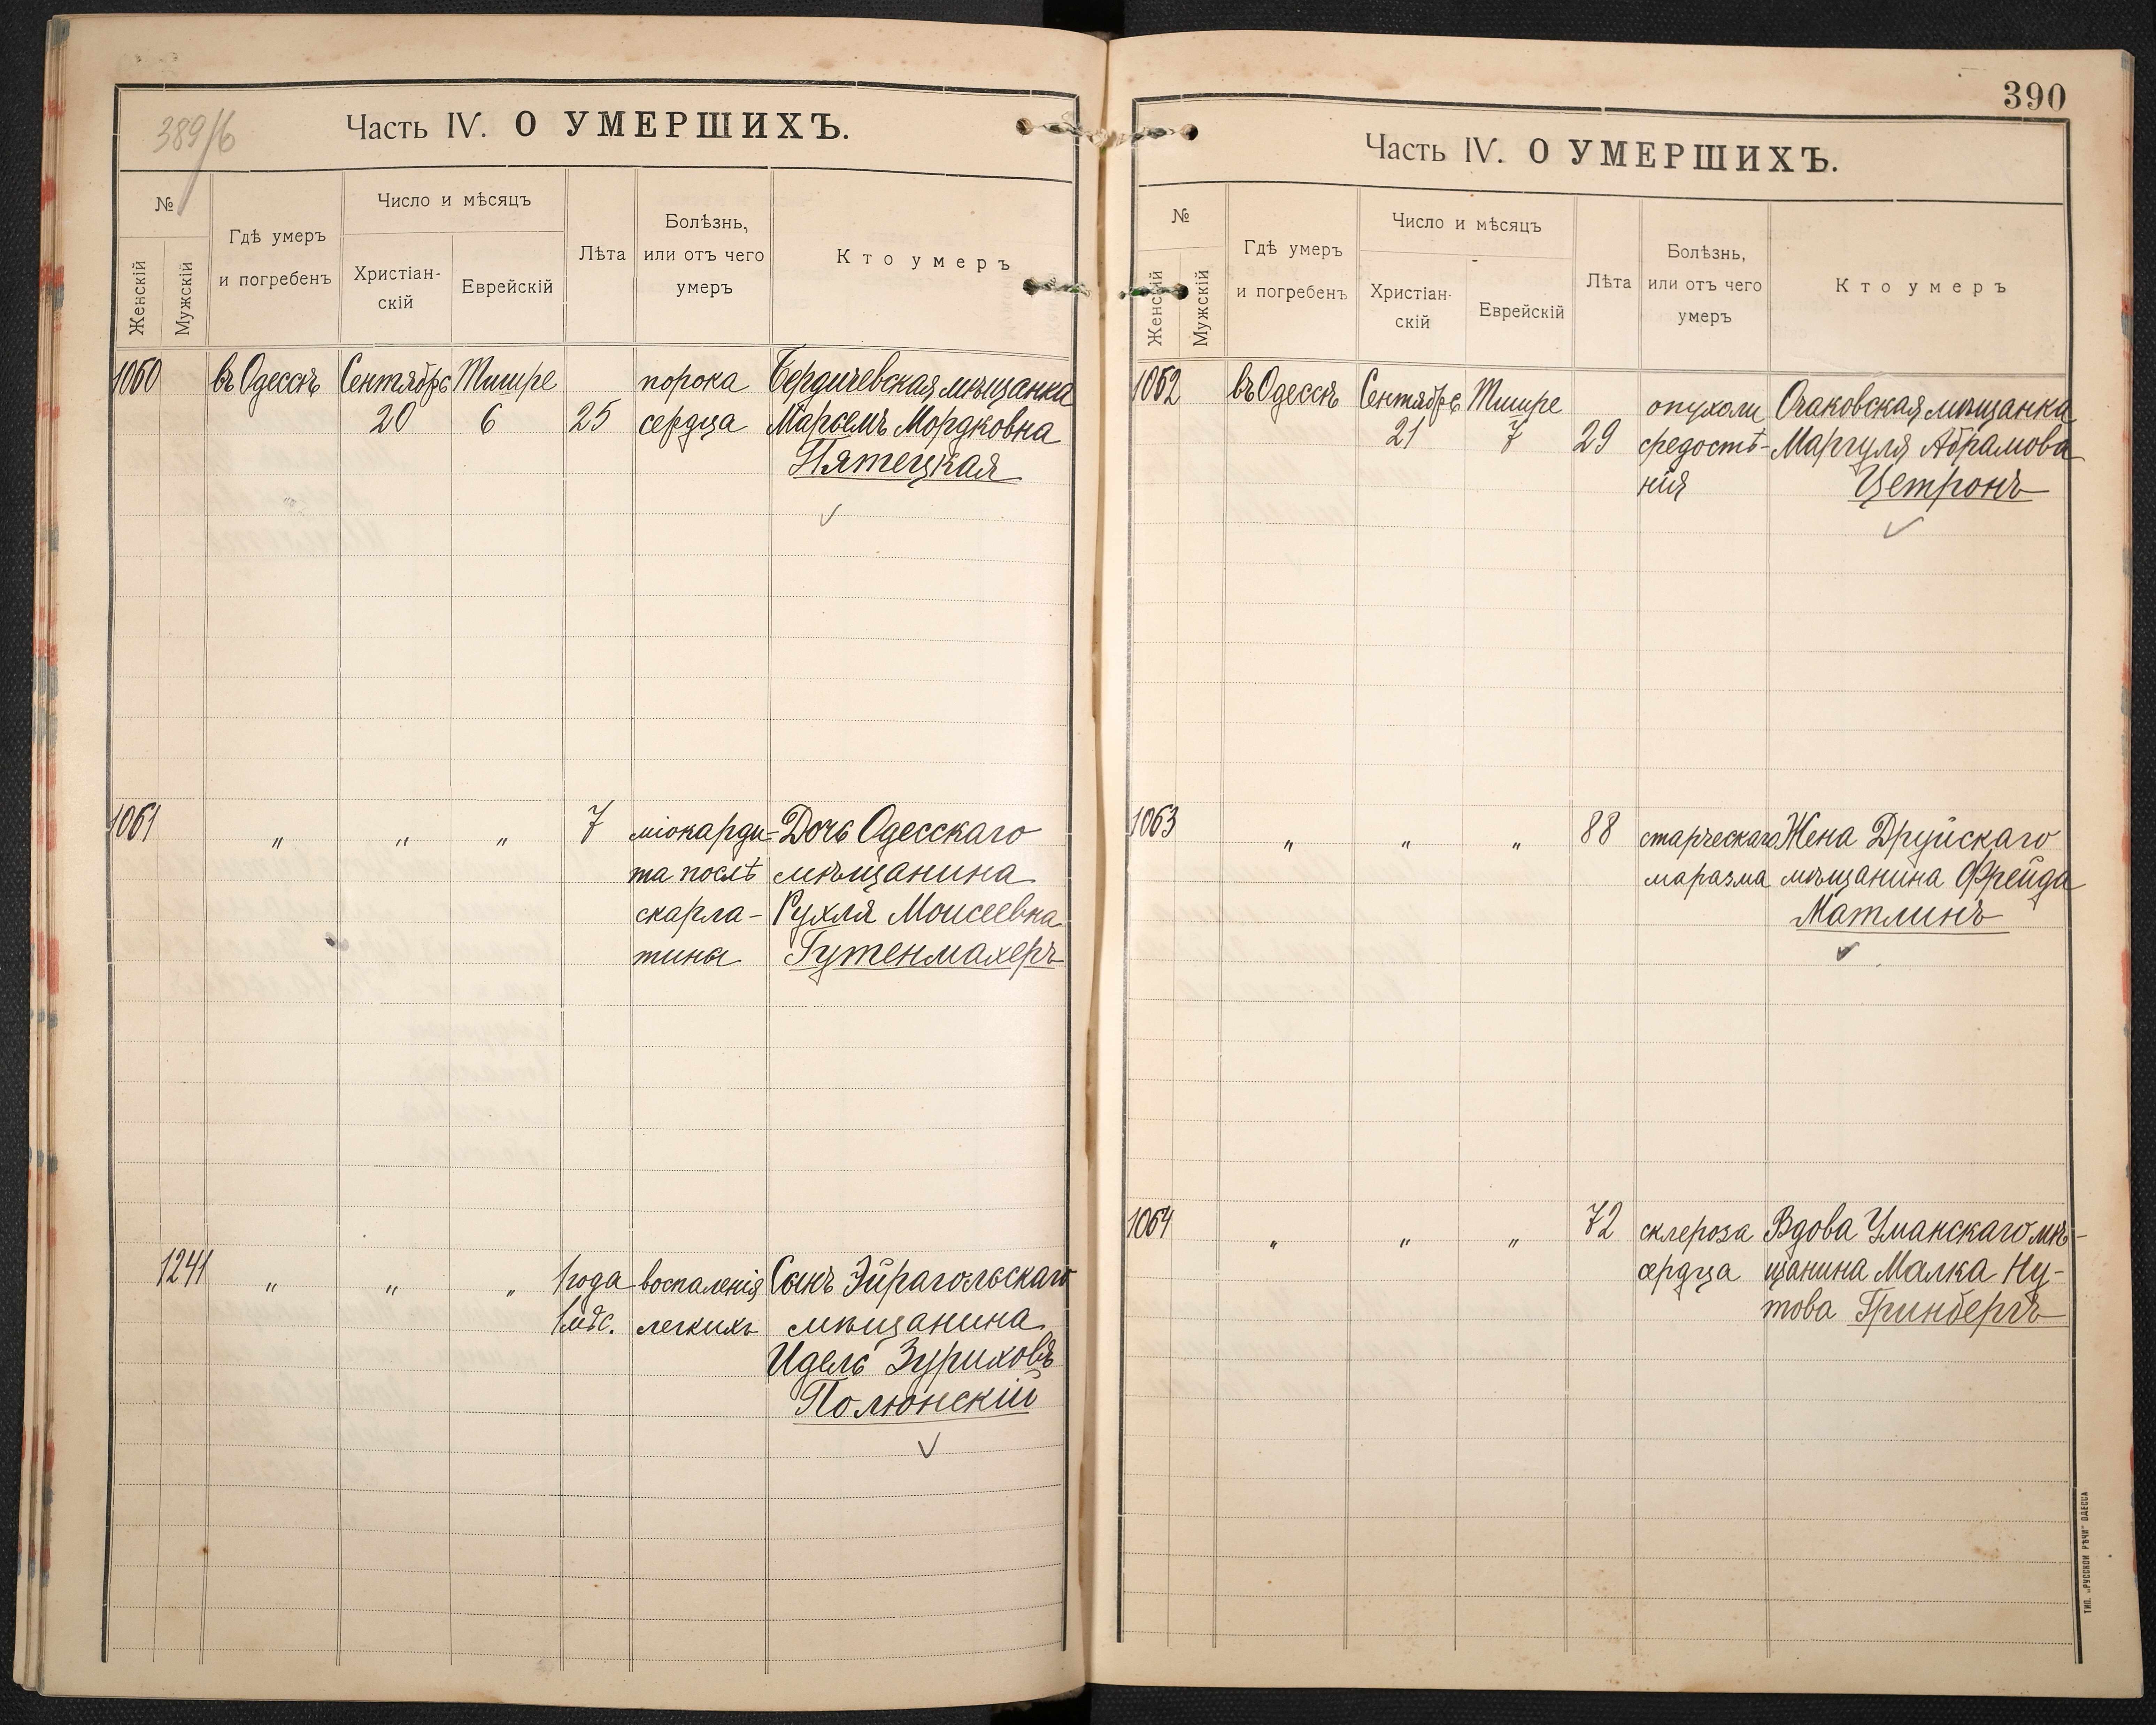 389/6
Часть IV. О УМЕРШИХЪ.
№
Женскій
Мужскій
Гдѣ умеръ
и погребенъ
Число и мѣсяцъ
Христіан-
скій
Еврейскій
Лѣта
Болѣзнь,
или отъ чего
умеръ
Кто умеръ
1060 въ Одессѣ Сентября Тишре порока Бердичевская мѣщанка
20 6 25 сердца Марьемъ Мордковна
Пятецкая
1061 " " " 7 міокарди- Дочь Одесскаго
та послѣ мѣщанина
скарла- Рухля Моисеевна
тины Гутенмахеръ
1241 " " " 1 года воспаленія Сынъ Эйрагольскаго
1 мѣс. легкихъ мѣщанина
Идель Зуриховъ
Полюнскій
390
Часть IV. О УМЕРШИХЪ.
№
Женскій
Мужскій
Гдѣ умеръ
и погребенъ
Число и мѣсяцъ
Христіан-
скій
Еврейскій
Лѣта
Болѣзнь,
или отъ чего
умеръ
Кто умеръ
1062 въ Одессѣ Сентября Тишре опухоли Очаковская мѣщанка
21 7 29 средостѣ- Маргуля Абрамова
нія Цетронъ
1063 " " " 88 старческаго Жена Друйскаго
маразма мѣщанина Фрейда
Матлинъ
1064 " " " 72 склероза Вдова Уманскаго мѣ-
сердца щанина Малка Ну-
това Гринбергъ
ТИП. „РУССКОЙ РѢЧИ" ОДЕССА